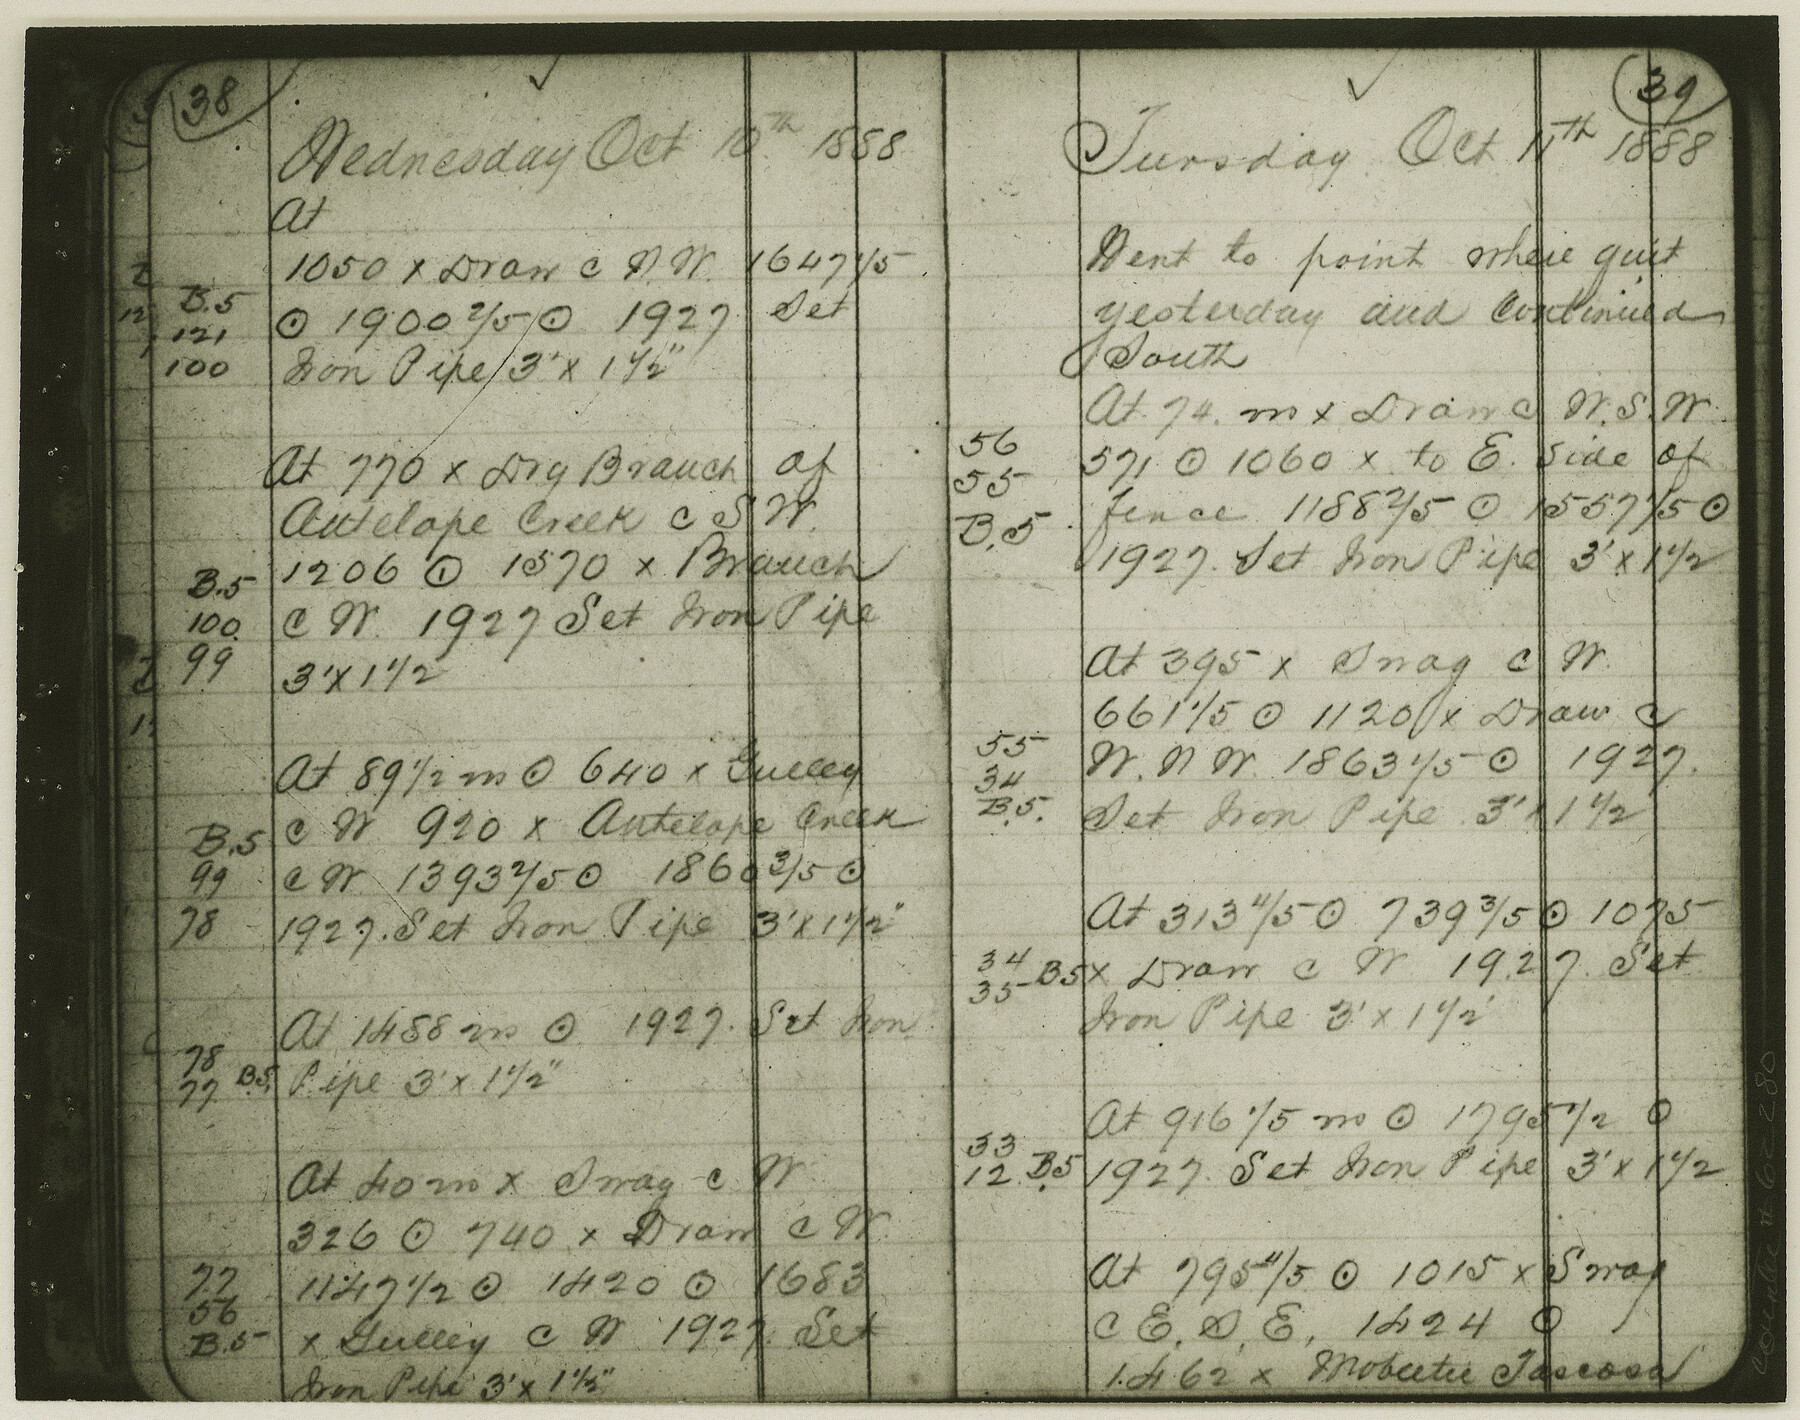 38
Wednesday Oct 10th 1888
At
1050 x Draw c N.W. 1647 1/5
B.5
121
100
⊙ 1900 2/5 ⊙ 1927 Set
Iron Pipe 3' x 1 1/2"
At 770 x Dry Branch of
Antelope Creek c S.W.
B.5
100
99
1206 ⊙ 1570 x Branch
c W. 1927 Set Iron Pipe
3' x 1 1/2
At 89 1/2 m ⊙ 640 x Gulley
B.5
99
78
c W 920 x Antelope Creek
c W 1393 2/5 ⊙ 1860 3/5 ⊙
1927. Set Iron Pipe 3' x 1 1/2"
At 1488 m ⊙ 1927. Set Iron
78
77 B.5.
Pipe 3' x 1 1/2"
At 40 m x Swag c W
326 ⊙ 740 x Draw c W
77
56
B.5
1147 1/2 ⊙ 1420 ⊙ 1683
x Gulley c W 1927. Set
Iron Pipe 3' x 1 1/2"
39
Tursday Oct 11th 1888
Went to point where quit
yesterday and Continued
South
At 74. m x Draw c W.S.W.
56
55
B.5
571 ⊙ 1060 x to E. Side of
fence 1188 2/5 ⊙ 1557 1/5 ⊙
1927. Set Iron Pipe 3' x 1 1/2
At 395 x Swag c W.
661 1/5 ⊙ 1120 x Draw c
55
34
B.5.
W.N.W. 1863 1/5 ⊙ 1927.
Set Iron Pipe 3' x 1 1/2
At 313 4/5 ⊙ 739 3/5 ⊙ 1075
34 B5
35
x Draw c W 1927. Set
Iron Pipe 3' x 1 1/2'
At 916 1/5 m ⊙ 1795 1/2 ⊙
33
12 B.5
1927. Set Iron Pipe 3' x 1 1/2
At 795 4/5 ⊙ 1015 x Swag
c E.S.E. 1424 ⊙
1462 x Mobeetie Tascosa
counter # 62280